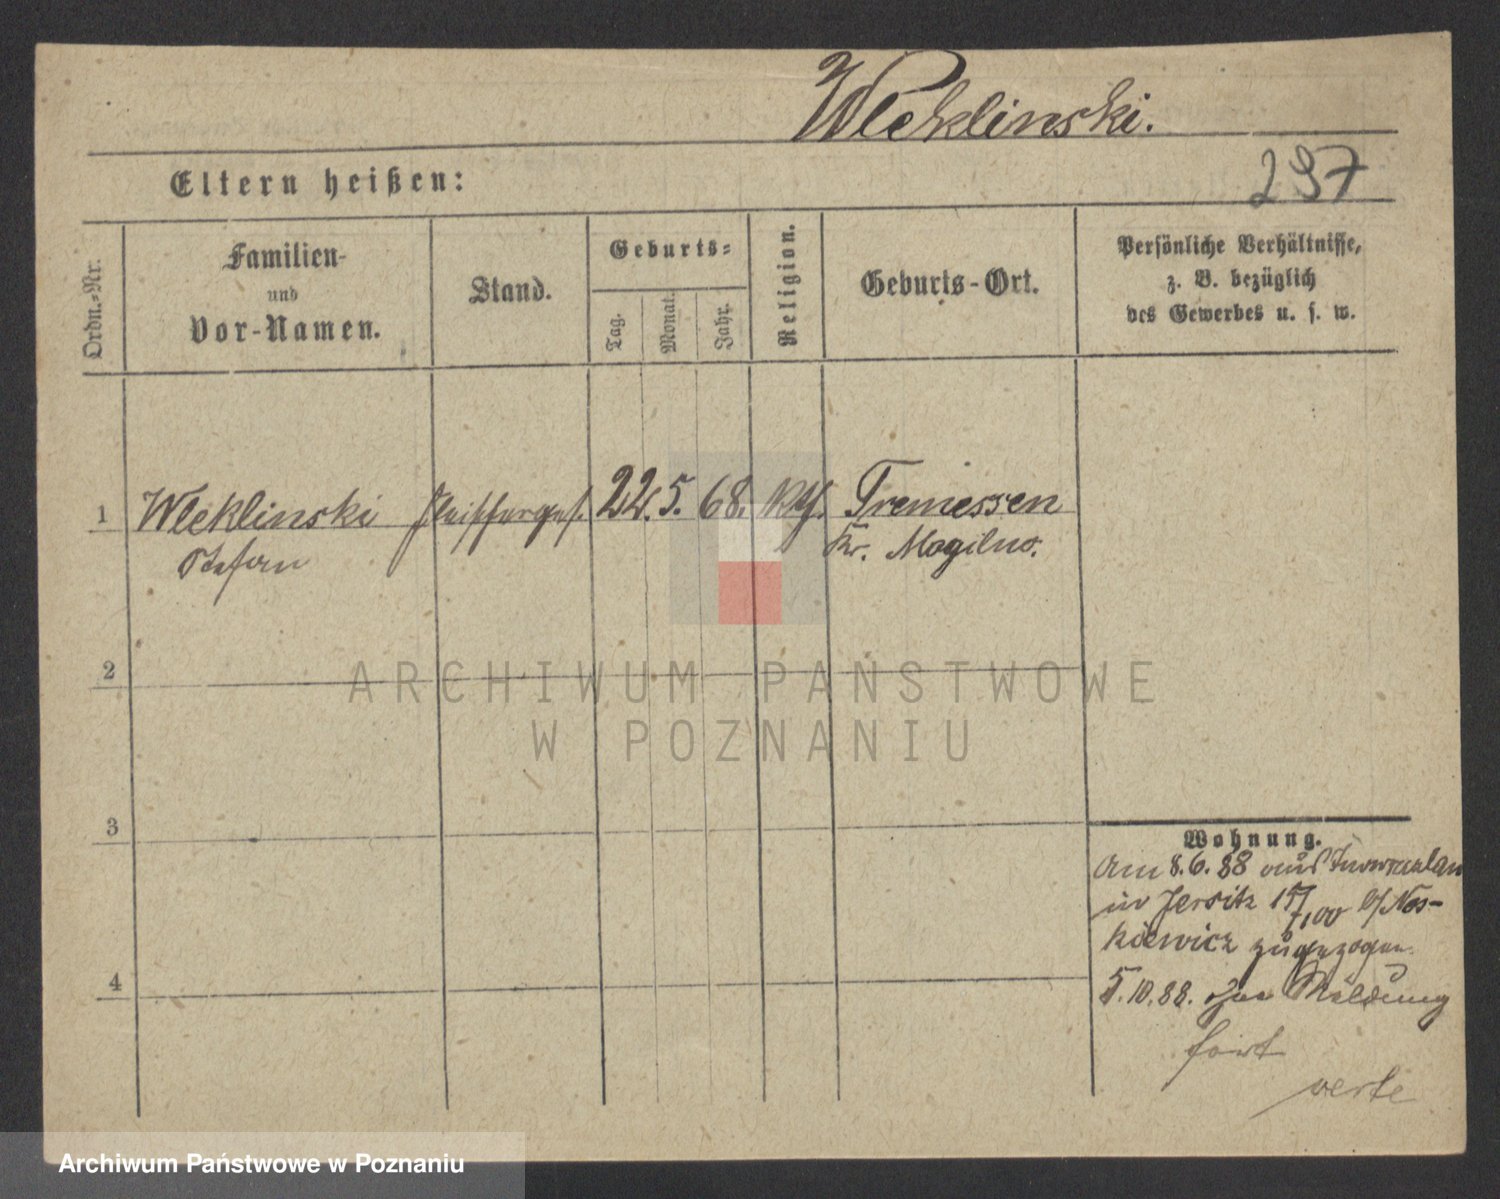 Wleklinski.
297
Eltern heißen:
Ordn.-Nr.
Familien-
und
Vor-Namen.
Stand.
Geburts-
Tag.
Monat.
Jahr.
Religion.
Geburts-Ort.
Persönliche Verhältnisse,
z. B. bezüglich
des Gewerbes u. s. w.
1 Wleklinski Fleischerges. 22. 5. 68. kth. Tremessen
Stefan Kr. Mogilno.
2
ARCHIWUM PAŃSTWOWE
W POZNANIU
3
Wohnung.
Am 8.6.88 aus Inowrazlaw
in Jersitz b/ Nos-
kiewicz zugezogen.
4
5.10.88. ohne Meldung
fort
verte
Archiwum Państwowe w Poznaniu